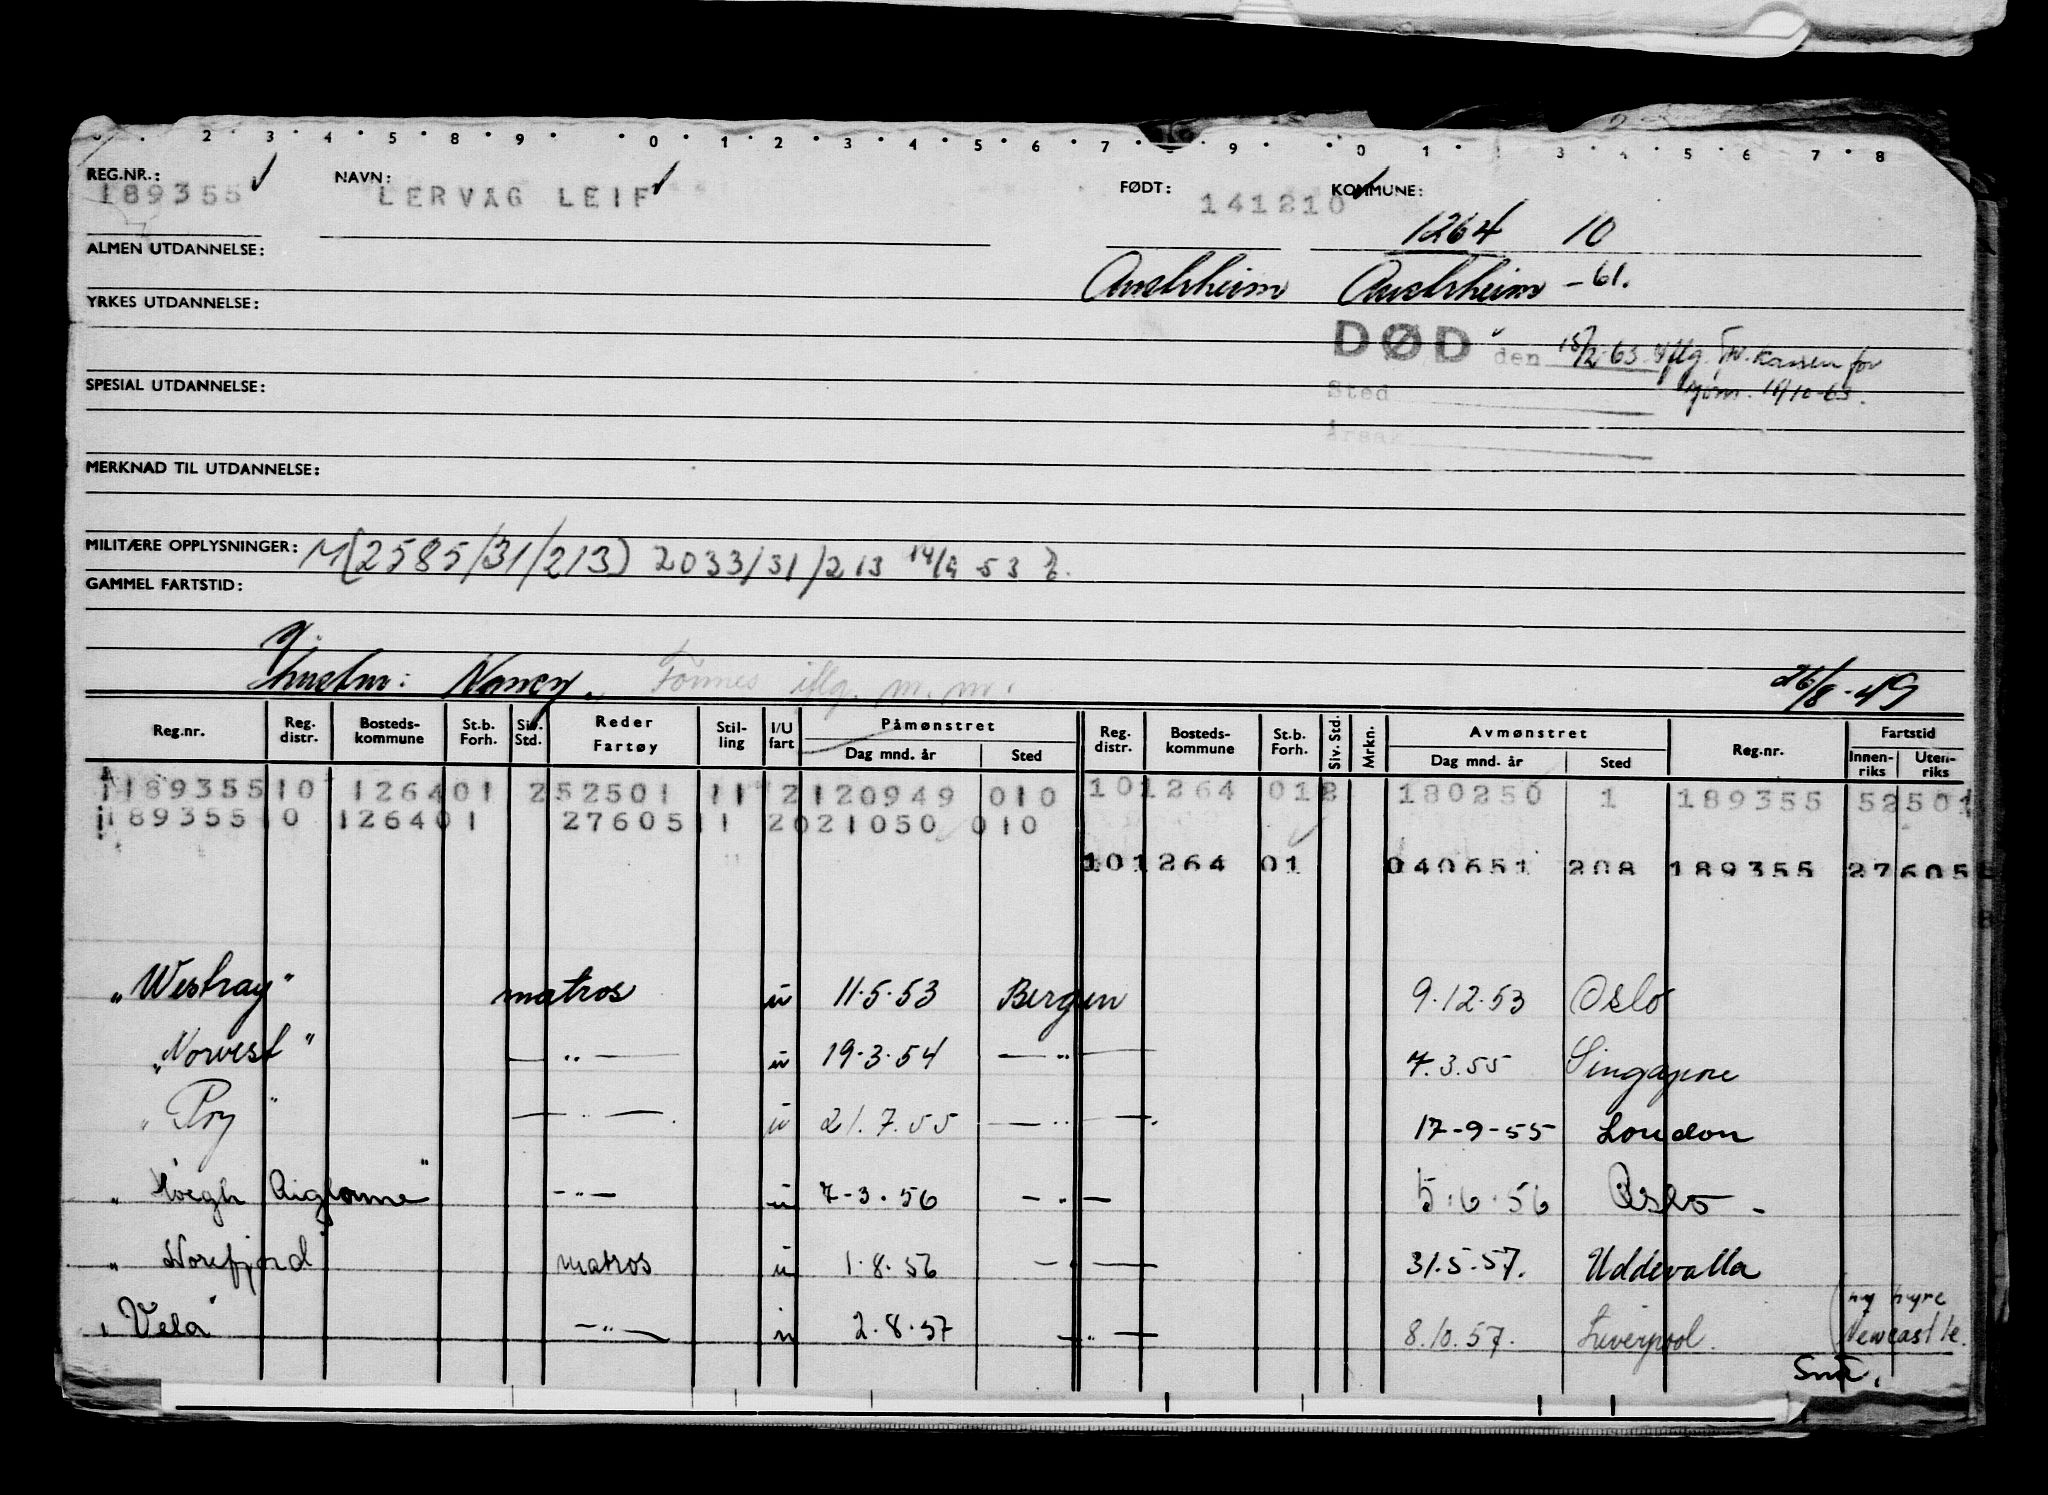 2 3 4 5 8 9 0 1 2 3 4 5 6 7 9 0 1 3 4 5 6 7 8
REG.NR.: NAVN: FØDT: KOMMUNE:
189355 LERVÅG LEIF 141210
1264 10
ALMEN UTDANNELSE:
Austrheim Austrheim -61.
YRKES UTDANNELSE:
DØD den 15/2-63 iflg. Tr.kassen for
Sted
Årsak
SPESIAL UTDANNELSE:
MERKNAD TIL UTDANNELSE:
MILITÆRE OPPLYSNINGER: M(2585/31/213) 2033/31/213 14/9-53
GAMMEL FARTSTID:
g.
hustru: Nancy. Fonnes iflg. m.m. 26/8-49
Reg.nr. Reg. distr. Bosteds-kommune St.b. Forh. Siv. Std. Reder Fartøy Stil-ling I/U fart Påmønstret Dag mnd. år Sted Reg. distr. Bosteds-kommune St.b. Forh. Siv. Std. Mrkn. Avmønstret Dag mnd. år Sted Reg.nr. Fartstid Innen-riks Uten-riks
118935510 126401 252501 11 2120949 010 101264 012 180250 1 189355 52501
18935510 126401 27605 11 2021050 010
101264 01 040651 208 189355 27605
„Westray" matros u 11.5.53 Bergen 9.12.53 Oslo
„Norvest" — " — u 19.3.54 — " — 7.3.55 Singapore
„Roy" — " — u 21.7.55 — " — 17-9-55 London
„Höegh Aiglonne" — " — u 7-3.56 — " — 5.6.56 Oslo -
„Norefjord" matros u 1.8.56 — " — 31.5.57. Uddevalla
„Vela" — " — u 2.8.57 — " — 8.10.57. Liverpool. (ny hyre
Newcastle.
Snu.